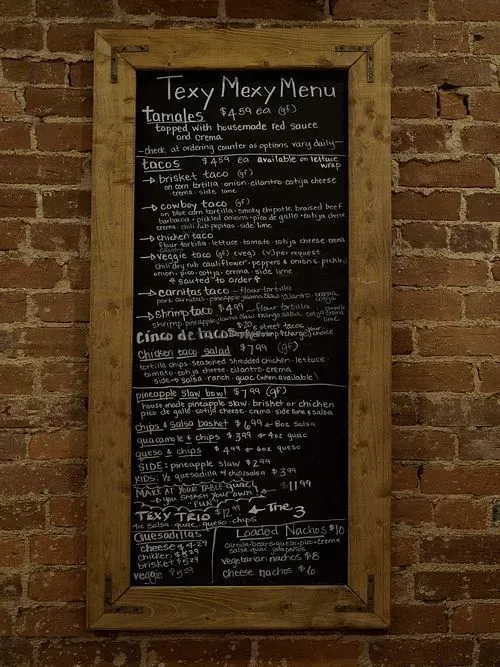 Texy Mexy Menu
tamales $4.59 ea (gf)
topped with housemade red sauce
and crema
-check at ordering counter as options vary daily-
tacos $4.59 ea available on lettuce
wrap
→ brisket taco (gf)
on corn tortilla · onion · cilantro · cotija cheese
crema · side lime
→ cowboy taco (gf)
on blue corn tortilla · smoky chipotle braised beef
barbacoa · pickled onions · pico de gallo · cotija cheese
crema · chili rub pepitas · side lime
→ chicken taco
flour tortilla · lettuce · tomato · cotija cheese crema
cilantro
→ veggie taco (gf) (veg) (v) per request
chili dry rub cauliflower · peppers & onions · pickled
onion · pico · cotija · crema · side lime
* sauted to order *
→ carnitas taco - flour tortilla
pork carnitas · pineapple jicama slaw · cilantro · crema
cotija
→ shrimp taco $4.99 - flour tortilla
shrimp · pineapple jicama slaw · mango salsa · cotija crema
lime
cinco de tacos $20 5 street tacos your
choice
chicken taco salad $7.99 (gf)
tortilla chips · seasoned shredded chicken · lettuce
tomato · cotija cheese · cilantro · crema
side → salsa · ranch · guac (when available)
pineapple slaw bowl $7.99 (gf)
house made pineapple slaw · brisket or chicken
pico de gallo · cotija cheese · crema · side lime & salsa
chips & salsa basket $6.99 8oz salsa
guacamole & chips $3.99 4oz guac
queso & chips $4.99 6oz queso
SIDE: pineapple slaw $2.99
KIDS: ½ quesadilla w/ chip/salsa $3.99
MAKE AT YOUR TABLE guac $11.99
→ you SMASH YOUR OWN!
"FUN"
TEXY TRIO $12.99 ← The 3
4oz salsa · guac · queso · chips
Quesadillas
cheese $4.29
chicken $5.29
brisket $5.29
veggie $5.29
Loaded Nachos $10
carnita · beans · queso · pico · crema
salsa guac jalapeños
vegetarian nachos $8
cheese nachos $6